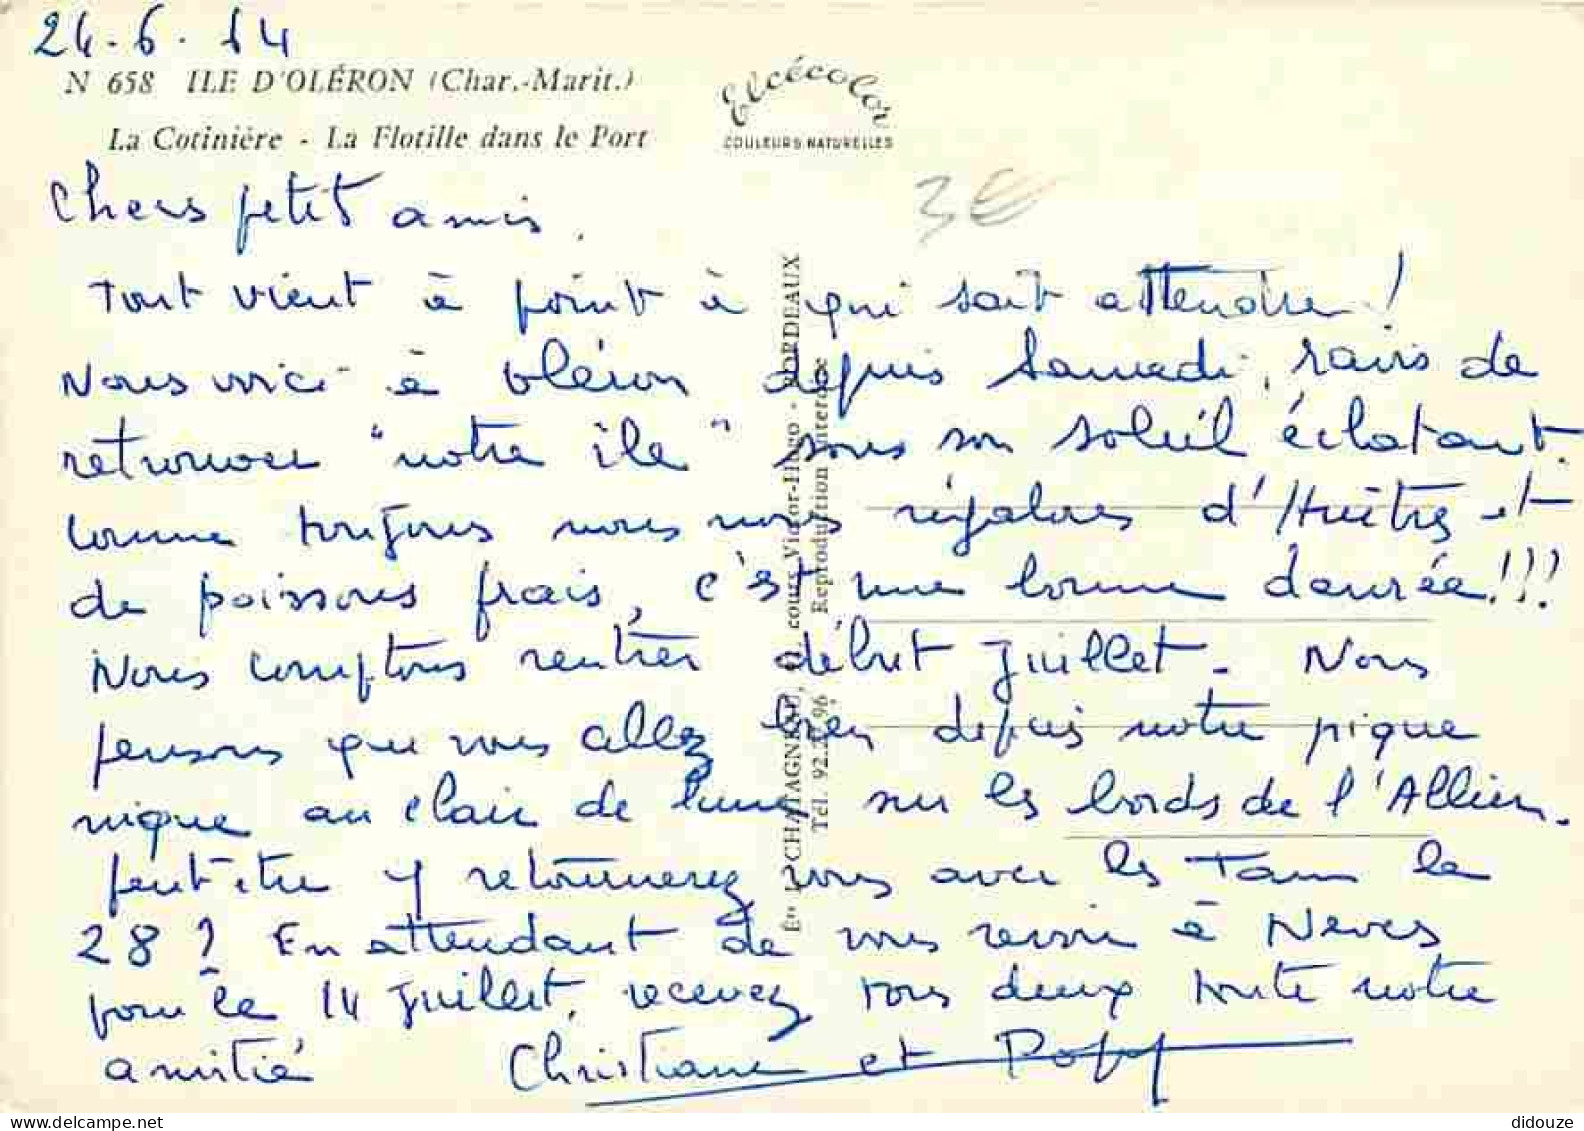 24.6.64
N 658 ILE D'OLÉRON (Char.-Marit.)
La Cotinière - La Flotille dans le Port
Elcécolor
COULEURS NATURELLES
3€
Chers petits amis,
Tout vient à point à qui sait attendre !
Nous voici à Oléron depuis Samedi, ravis de
retrouver "notre île" sous son soleil éclatant.
Comme toujours nous nous régalons d'Huîtres et
de poissons frais, c'est une bonne denrée !!!
Nous comptons rentrer début Juillet. Nous
pensons que vous allez bien depuis notre pique
nique au clair de lune sur les bords de l'Allier.
peut-être y retournerez vous avec les Tam le
28 ? En attendant de vous revoir à Nevers
pour le 14 Juillet, recevez tous deux toute notre
amitié Christiane et Popy
Éts CHATAGNEAU, cours Victor-Hugo - BORDEAUX
Tél. 92. 96 Reproduction interdite
didouze